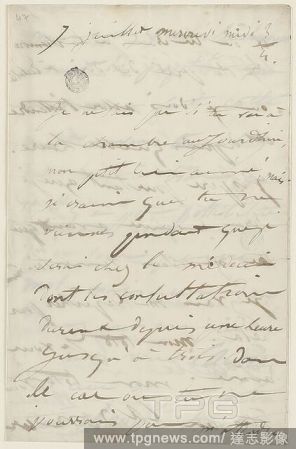 7 juillet mercredi midi 3/4
Je ne sais pas si tu iras à
la chambre aujourd'hui,
mon petit bien aimé, mais
je crains que tu ne
viennes pendant que je
serai chez le médecin
dont les consultations
durent depuis une heure
jusqu'à trois. Dans
le cas où tu ne
pourrais pas
TPG
www.tpgnews.com / 達志影像